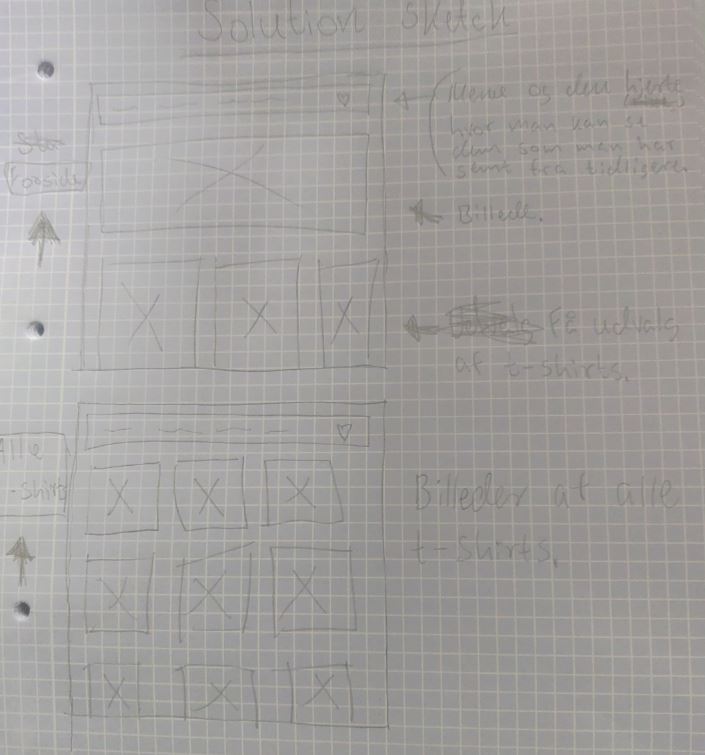 Solution sketch
Forside
Menu og den hjerte
hvor man kan se
dem som man har
gemt fra tidligere.
Billede.
Få udvalg
af t-shirts.
Alle
-shirt
Billeder af alle
t-shirts.